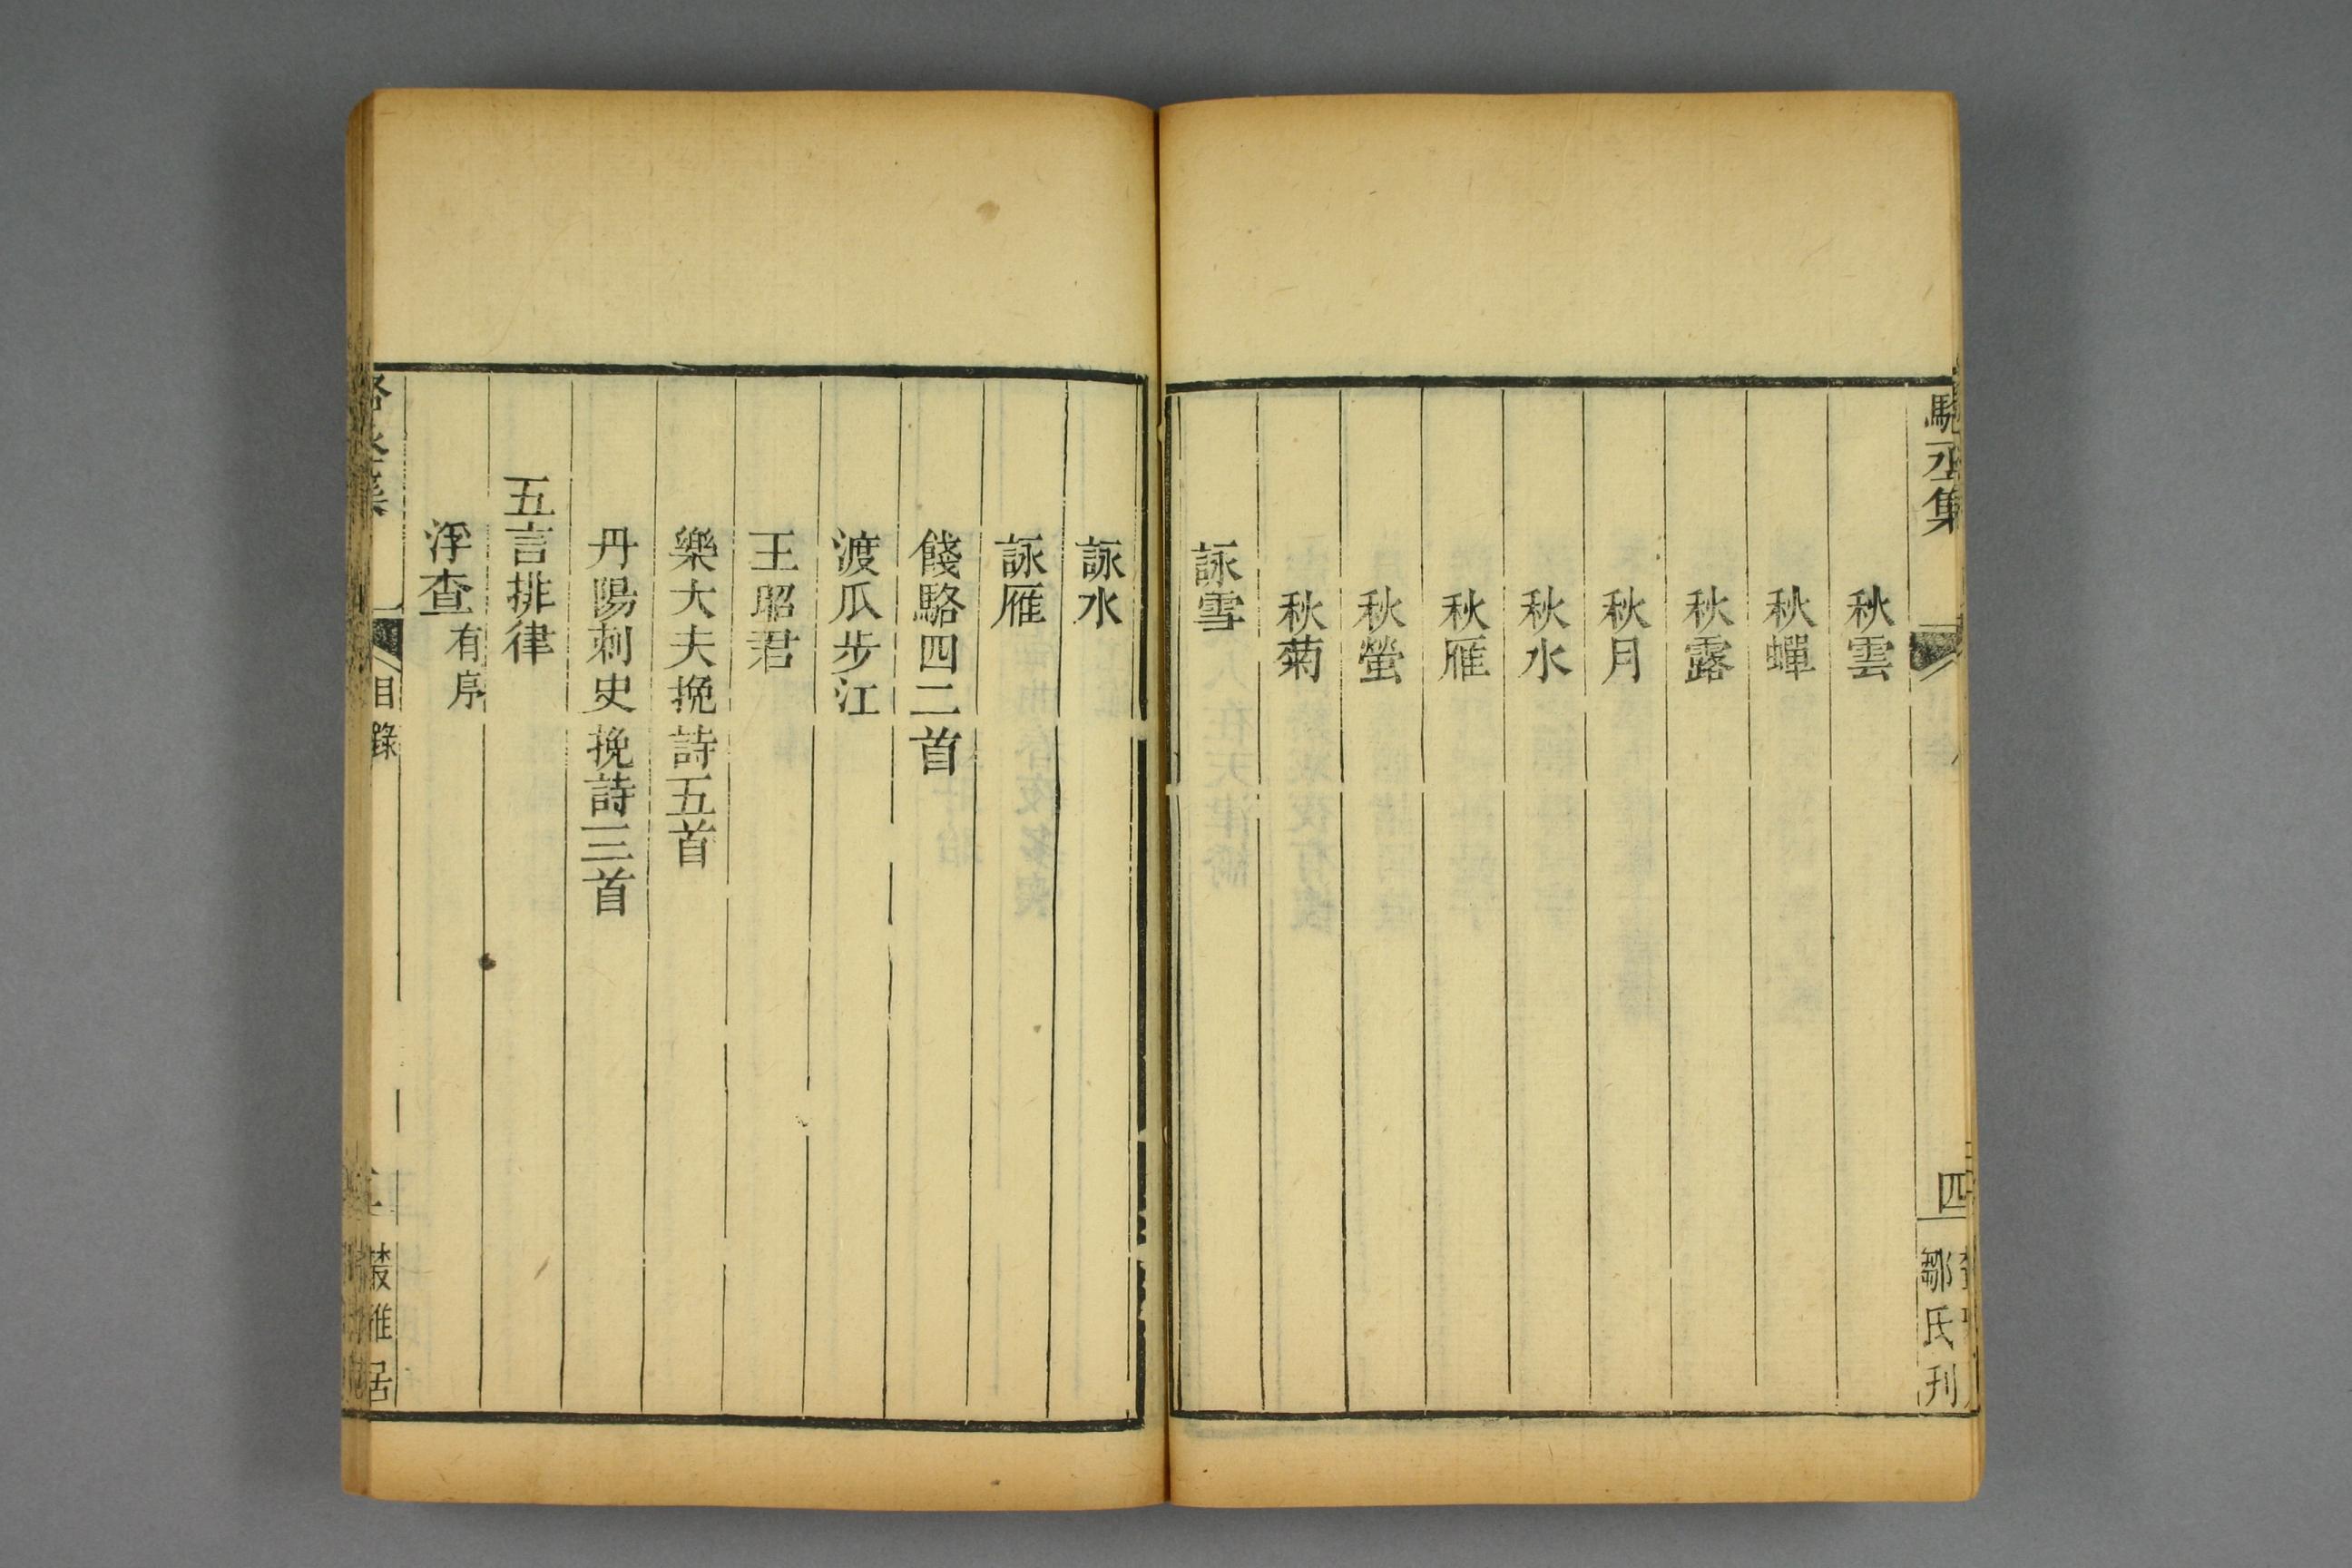 丞集
四
鄒氏刋
秋雲
秋蟬
秋露
秋月
秋水
秋雁
秋螢
秋菊
詠雪
詠水
詠雁
餞駱四二首
渡瓜步江
王昭君
樂大夫挽詩五首
丹陽刺史挽詩三首
五言排律
浮查有序
目錄
居